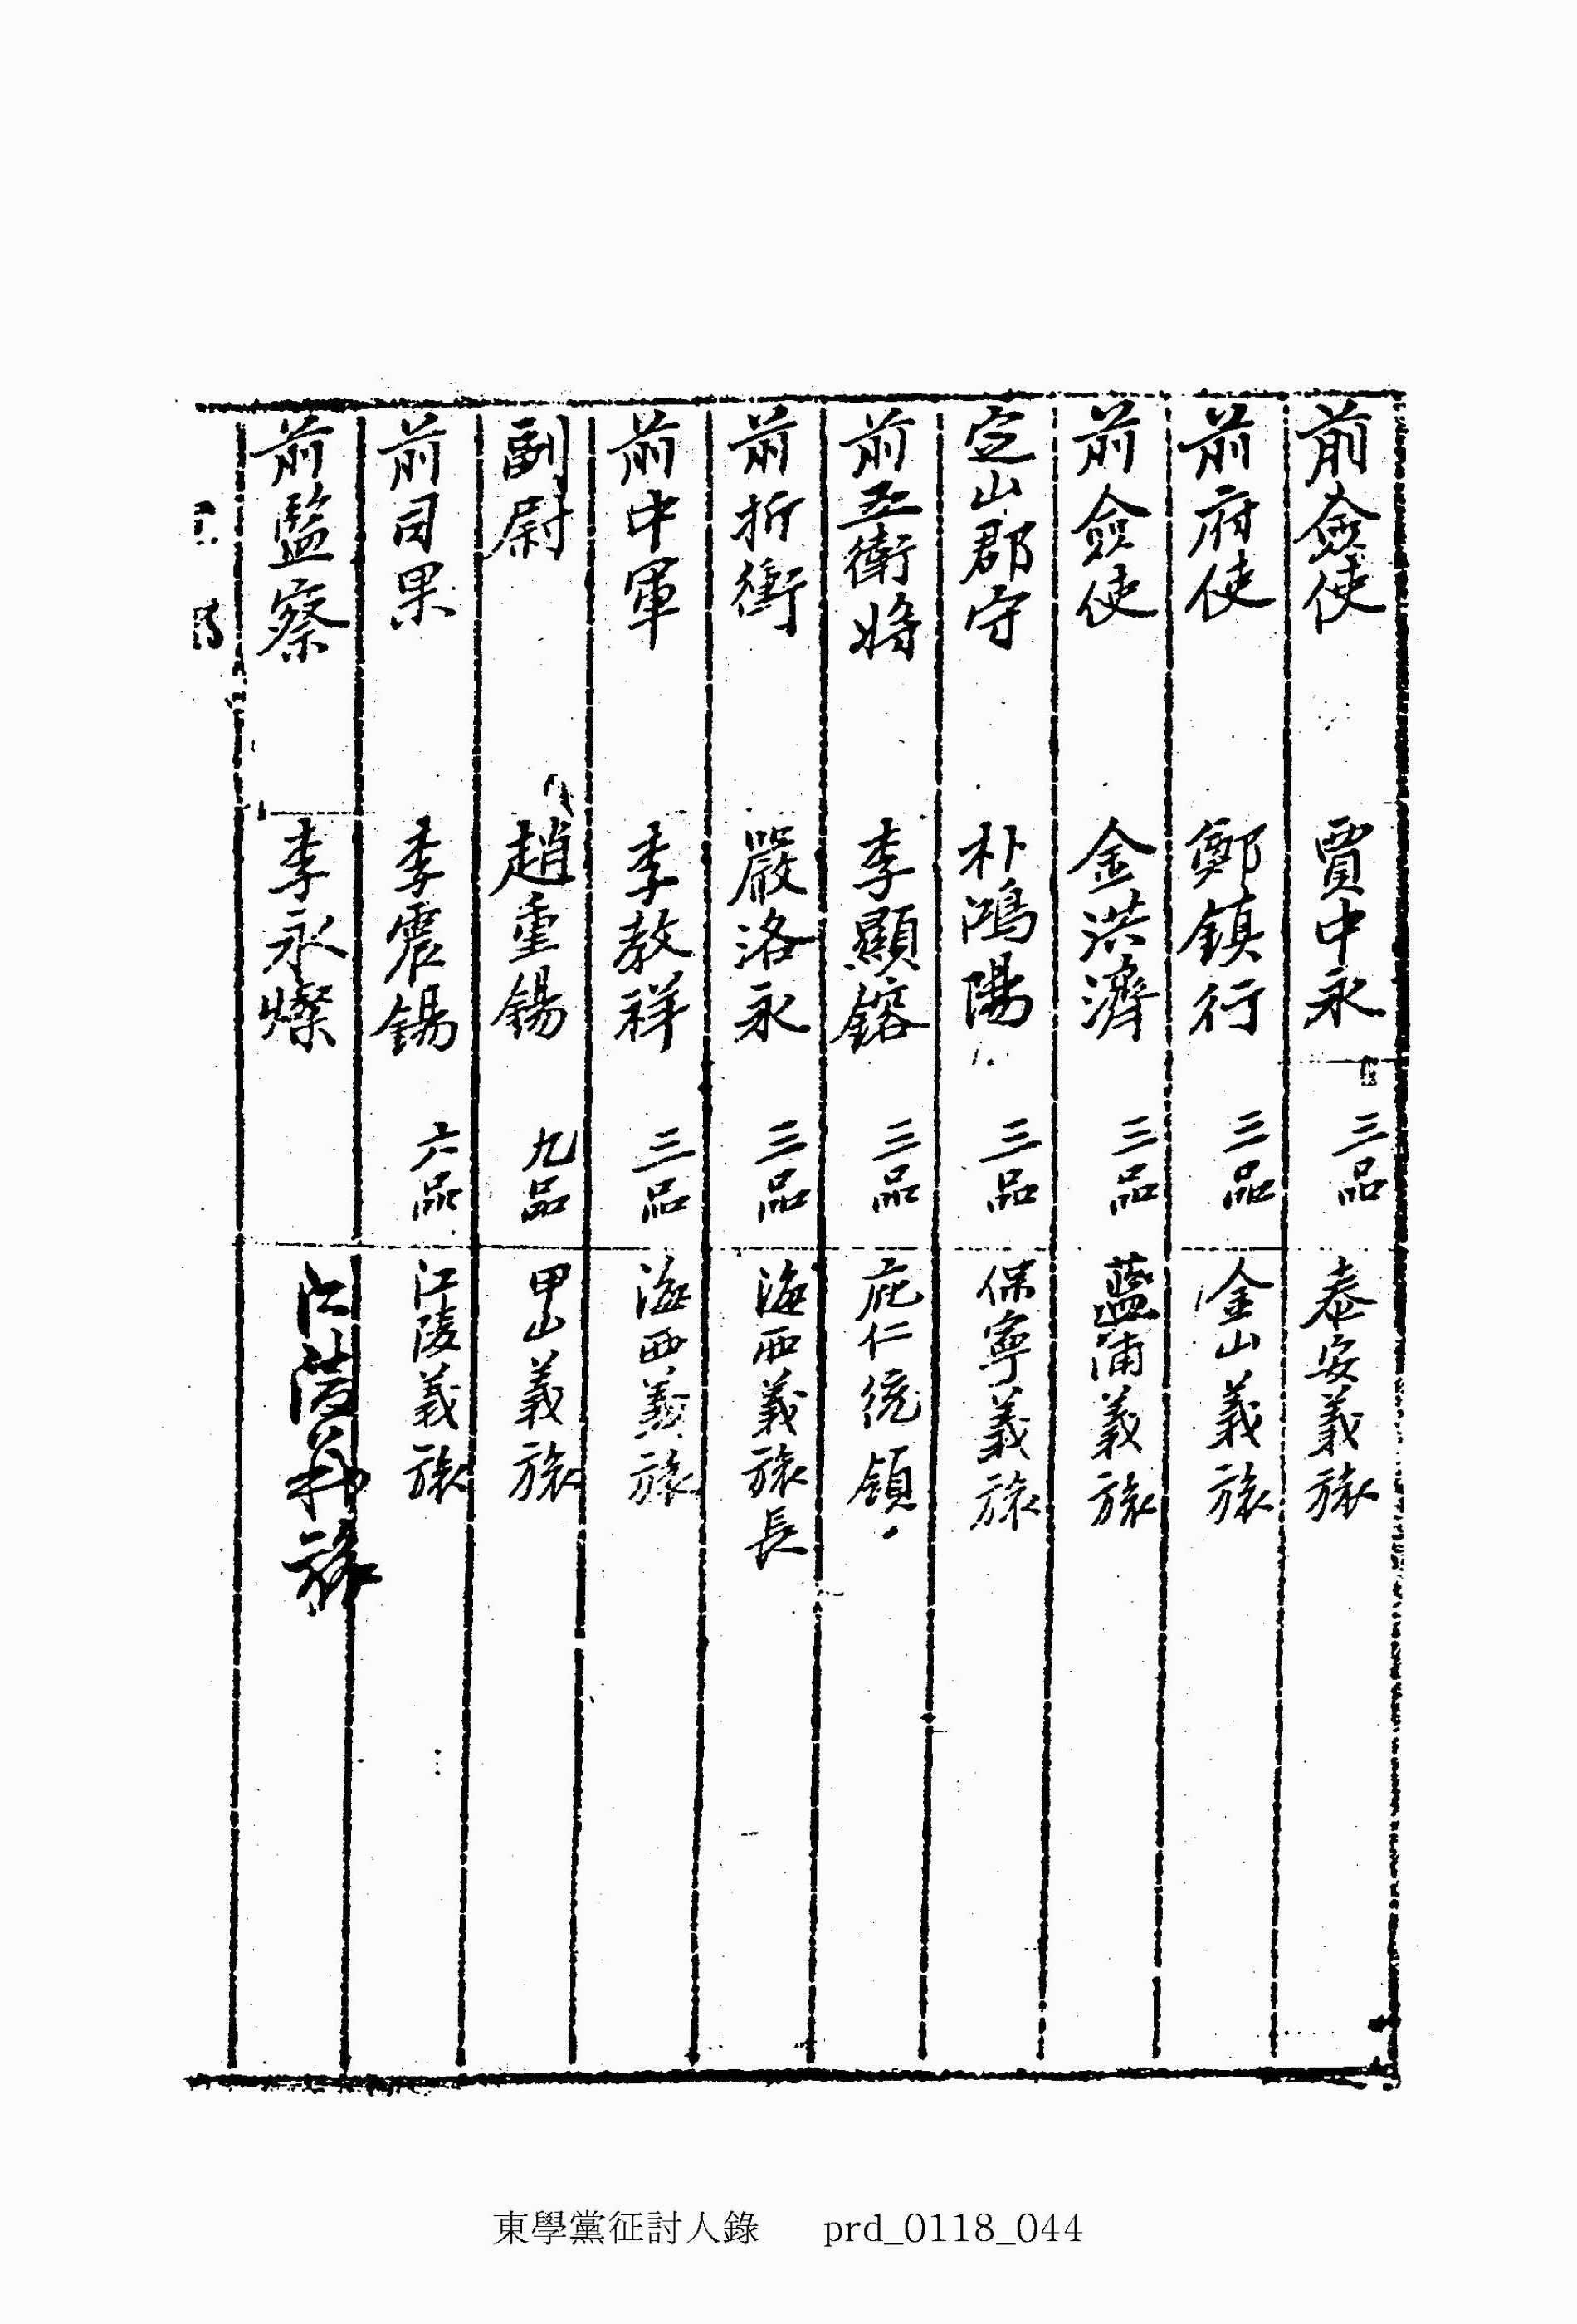 前僉使 賈中永 三品 泰安義旅
前府使 鄭鎮行 三品 金山義旅
前僉使 金洪濟 三品 藍浦義旅
定山郡守 朴鴻陽 三品 保寧義旅
前五衛將 李顯鎔 三品 庇仁統領
前折衝 嚴洛永 三品 海西義旅長
前中軍 李敎祥 三品 海西義旅
副尉 趙重錫 九品 甲山義旅
前司果 李震錫 六品 江陵義旅
前監察 李永燦 江陵義旅
東學黨征討人錄 prd_0118_044